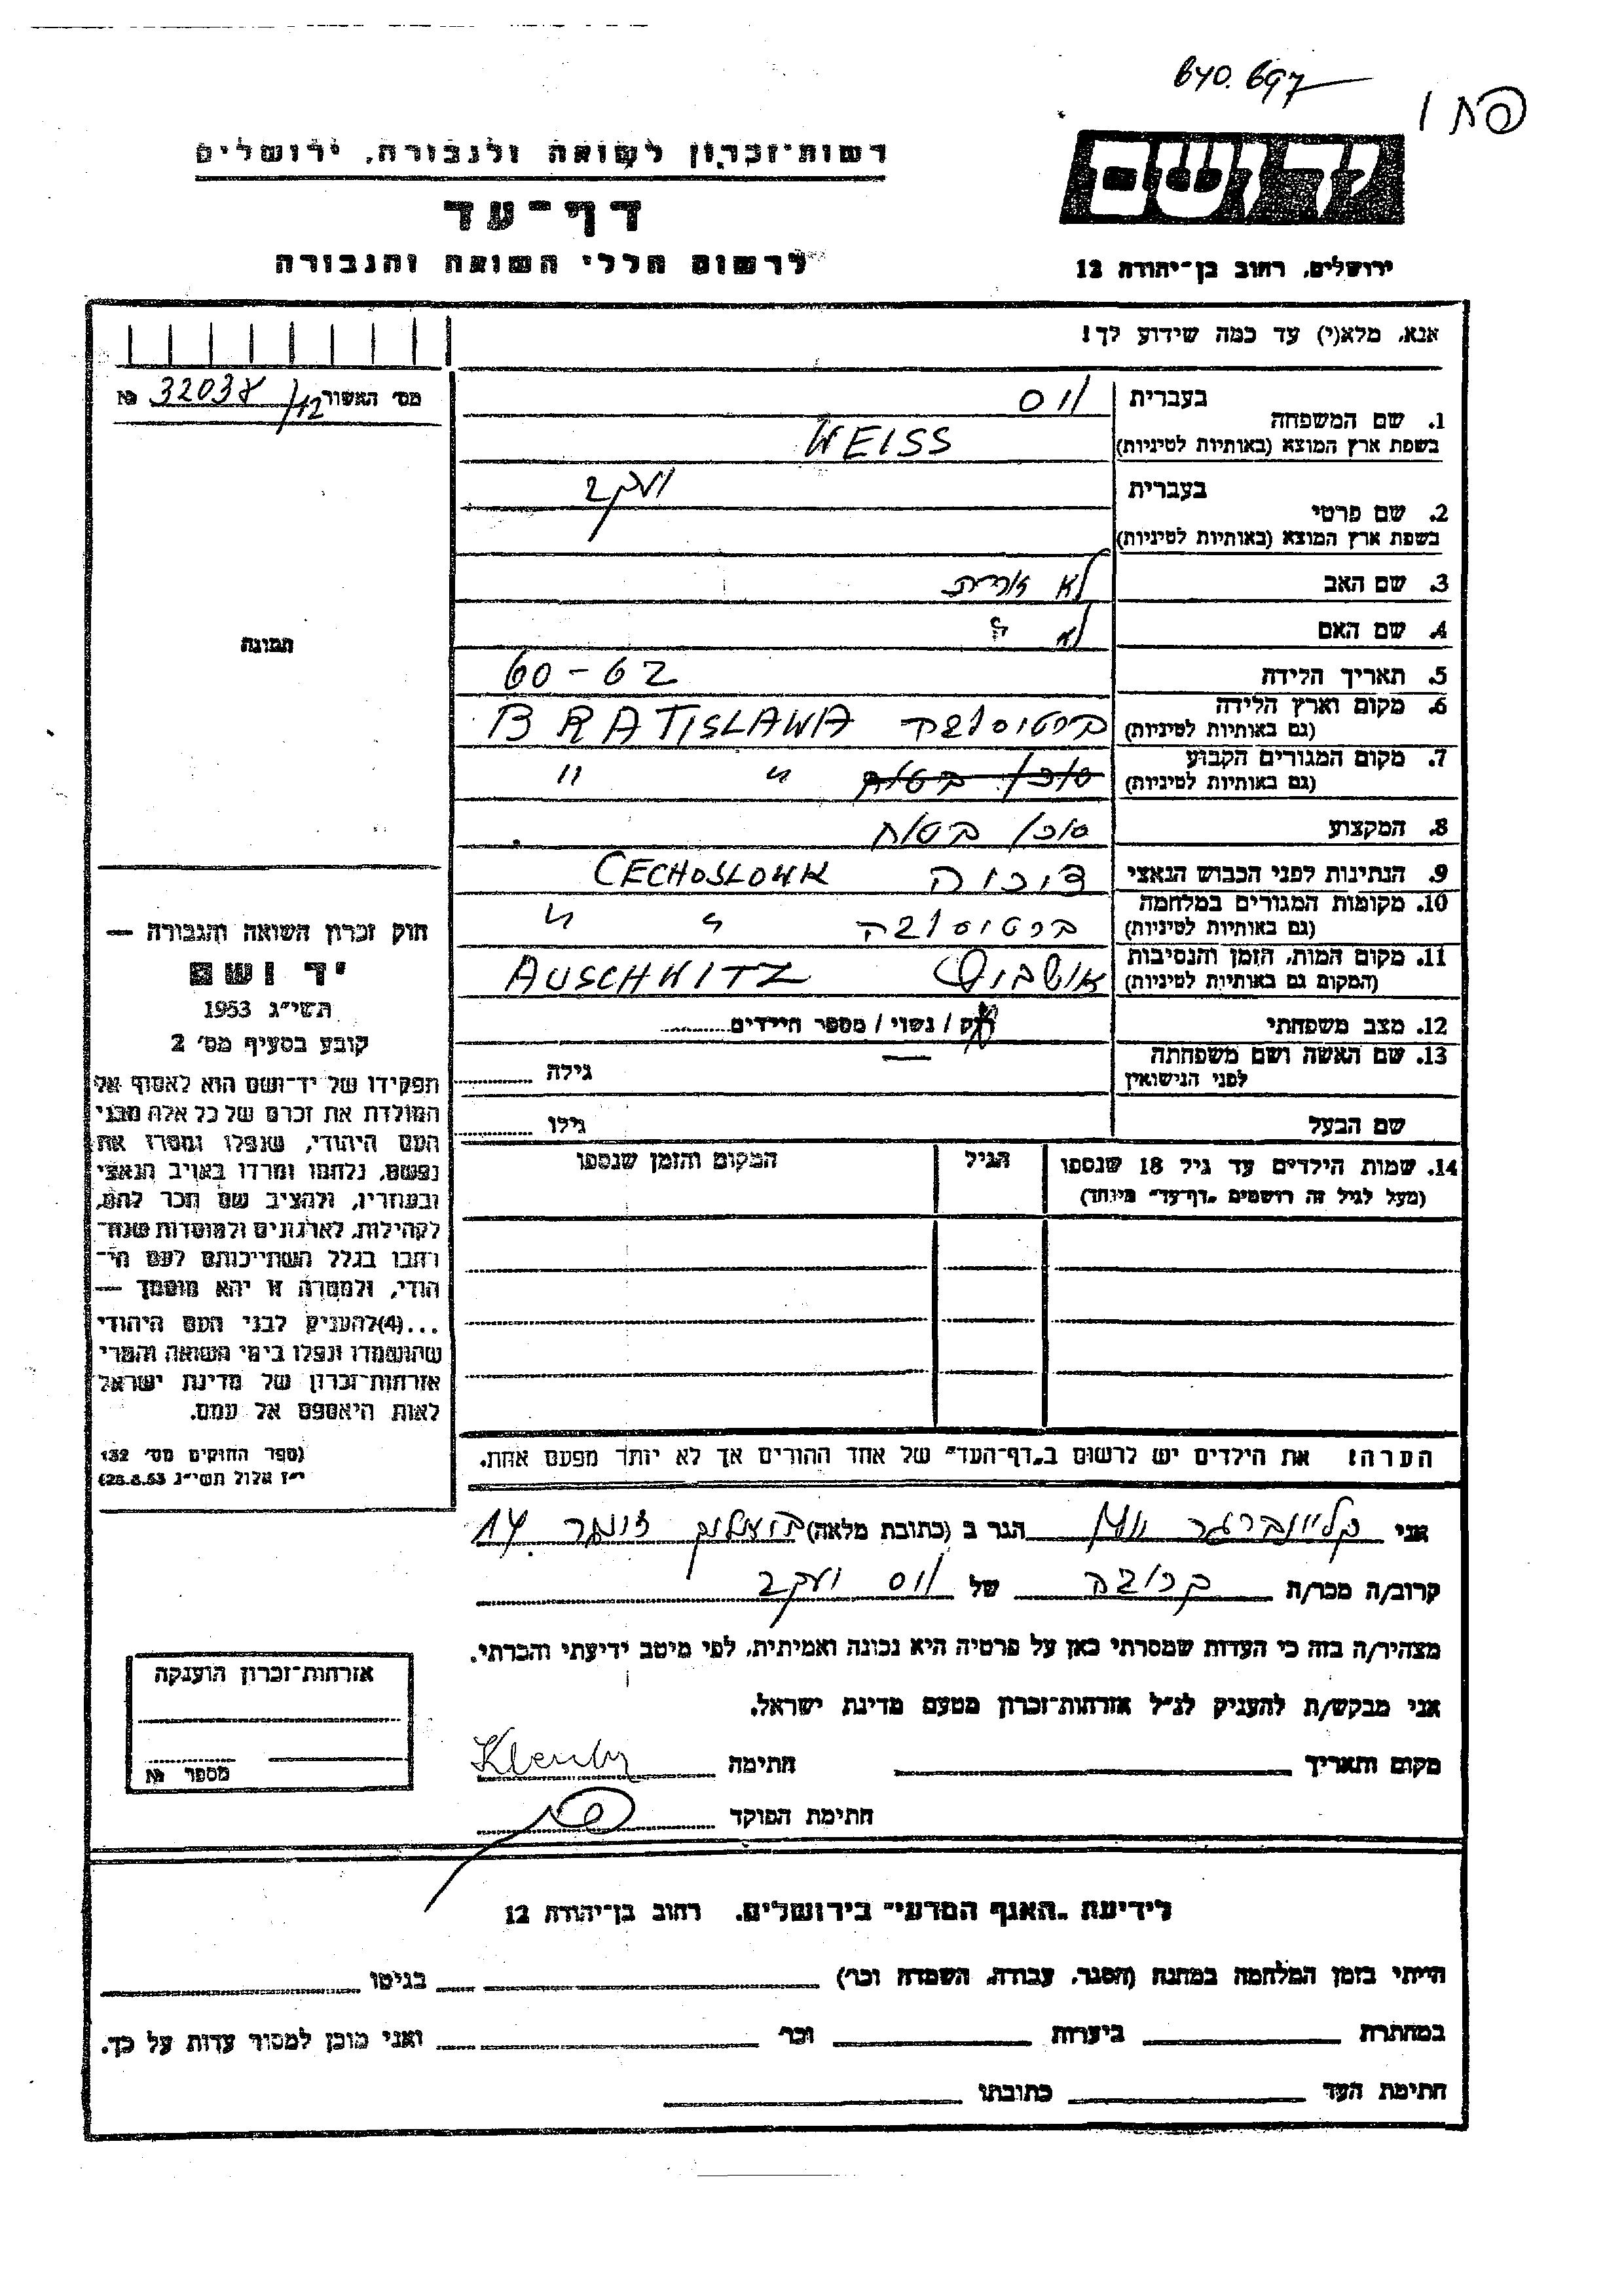 640.697
רשות־זכרון לשואה ולגבורה, ירושלים
דף־עד
לרשום חללי השואה והגבורה
יד ושם
ירושלים, רחוב בן־יהודה 12
אנא, מלא(י) עד כמה שידוע לך!
מס׳ האשור 32038/12 №
1. שם המשפחה
בעברית וויס
בשפת ארץ המוצא (באותיות לטיניות) WEISS
2. שם פרטי
בעברית יעקב
בשפת ארץ המוצא (באותיות לטיניות)
3. שם האב לא
4. שם האם לא "
5. תאריך הלידה 60-62
6. מקום וארץ הלידה
(גם באותיות לטיניות) ברטיסלבה BRATISLAWA
7. מקום המגורים הקבוע
(גם באותיות לטיניות) סוכן בטוח " "
8. המקצוע סוכן בטוח
9. הנתינות לפני הכבוש הנאצי CECHOSLOWAK
10. מקומות המגורים במלחמה
(גם באותיות לטיניות) ברטיסלבה " "
11. מקום המות, הזמן והנסיבות
(המקום גם באותיות לטיניות) אושביץ AUSCHWITZ
12. מצב משפחתי רוק / נשוי / מספר הילדים
13. שם האשה ושם משפחתה
לפני הנישואין — גילה
שם הבעל גילו
14. שמות הילדים עד גיל 18 שנספו הגיל המקום והזמן שנספו
(מעל לגיל זה רושמים „דף־עד״ מיוחד)
הערה: את הילדים יש לרשום ב„דף־העד״ של אחד ההורים אך לא יותר מפעם אחת.
תמונה
חוק זכרון השואה והגבורה —
יד ושם
תשי״ג 1953
קובע בסעיף מס׳ 2
תפקידו של יד־ושם הוא לאסוף אל
המולדת את זכרם של כל אלה מבני
העם היהודי, שנפלו ומסרו את
נפשם, נלחמו ומרדו באויב הנאצי
ובעוזריו, ולהציב שם וזכר להם,
לקהילות, לארגונים ולמוסדות שנח־
רבו בגלל השתייכותם לעם הי־
הודי, ולמטרה זו יהא מוסמך —
...(4)להעניק לבני העם היהודי
שהושמדו ונפלו בימי השואה והמרי
אזרחות־זכרון של מדינת ישראל
לאות היאספם אל עמם.
(ספר החוקים מס׳ 132
י״ז אלול תשי״ג 28.8.53)
אני קליינברגר הגר ב (כתובת מלאה) 14
קרוב/ה מכר/ה קרובה של וויס יעקב
מצהיר/ה בזה כי העדות שמסרתי כאן על פרטיה היא נכונה ואמיתית, לפי מיטב ידיעתי והכרתי.
אני מבקש/ת להעניק לנ״ל אזרחות־זכרון מטעם מדינת ישראל.
מקום ותאריך חתימה
חתימת הפוקד
אזרחות־זכרון הוענקה
מספר №
לידיעת „האגף המדעי״ בירושלים. רחוב בן־יהודה 12
הייתי בזמן המלחמה במחנה (הסגר, עבודה, השמדה וכו׳) בגיטו
במחתרת ביערות וכו׳ ואני מוכן למסור עדות על כך.
חתימת העד כתובתו